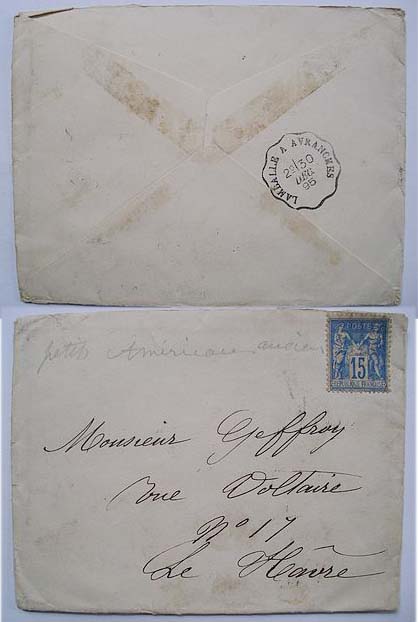 LAMBALLE A AVRANCHES
2º/30
DEC.
95
petits Américain ancien
POSTE
15
REPUBLIQUE FRANÇAISE
Monsieur Geffroy
rue Voltaire
Nº 17
Le Hâvre